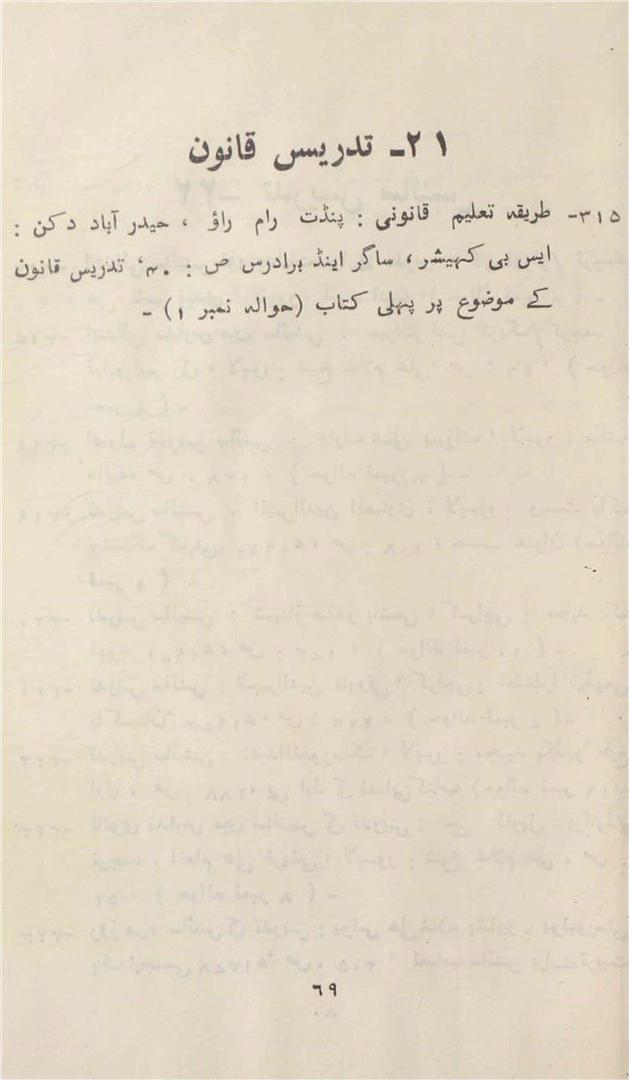 ۲۱- تدریس قانون
۳۱۵- طریقہ تعلیم قانونی : پنڈت رام راؤ ، حیدر آباد دکن :
ایس بی کہیشر ، ساگر اینڈ برادرس ص : ۴۰، تدریس قانون
کے موضوع پر پہلی کتاب (حوالہ نمبر ۱) -
۶۹